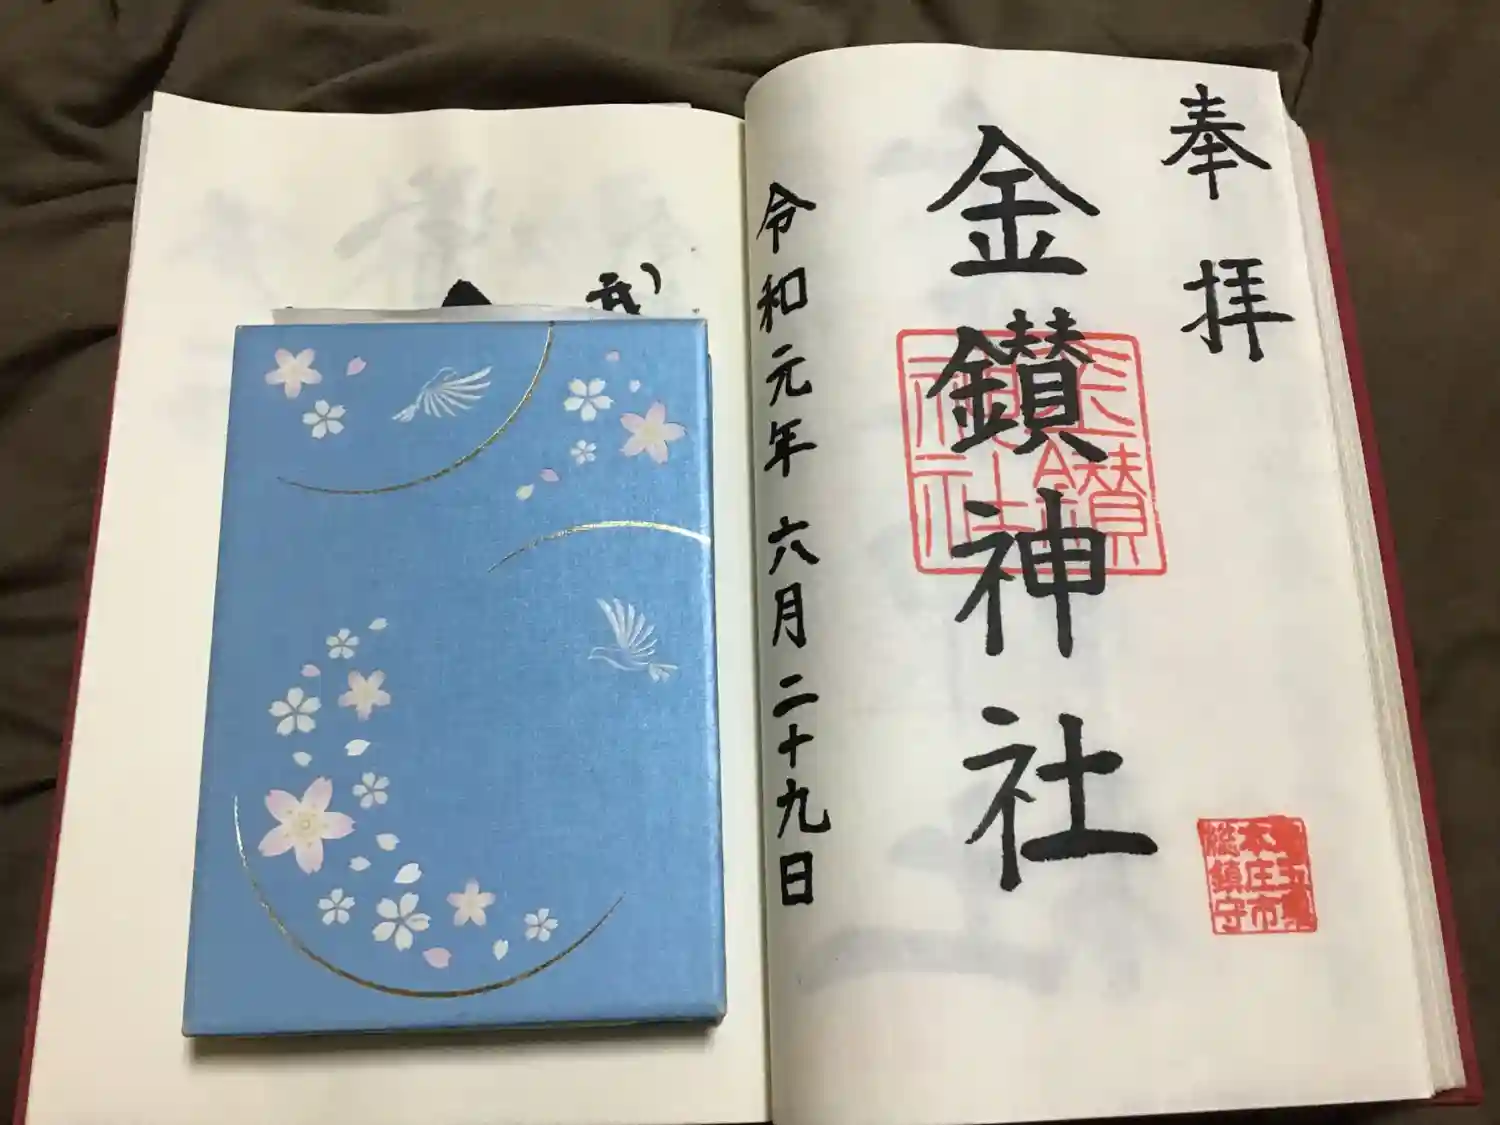 奉拝
金鑚神社
令和元年 六月二十九日
金鑚
神社
本庄市
総鎮守